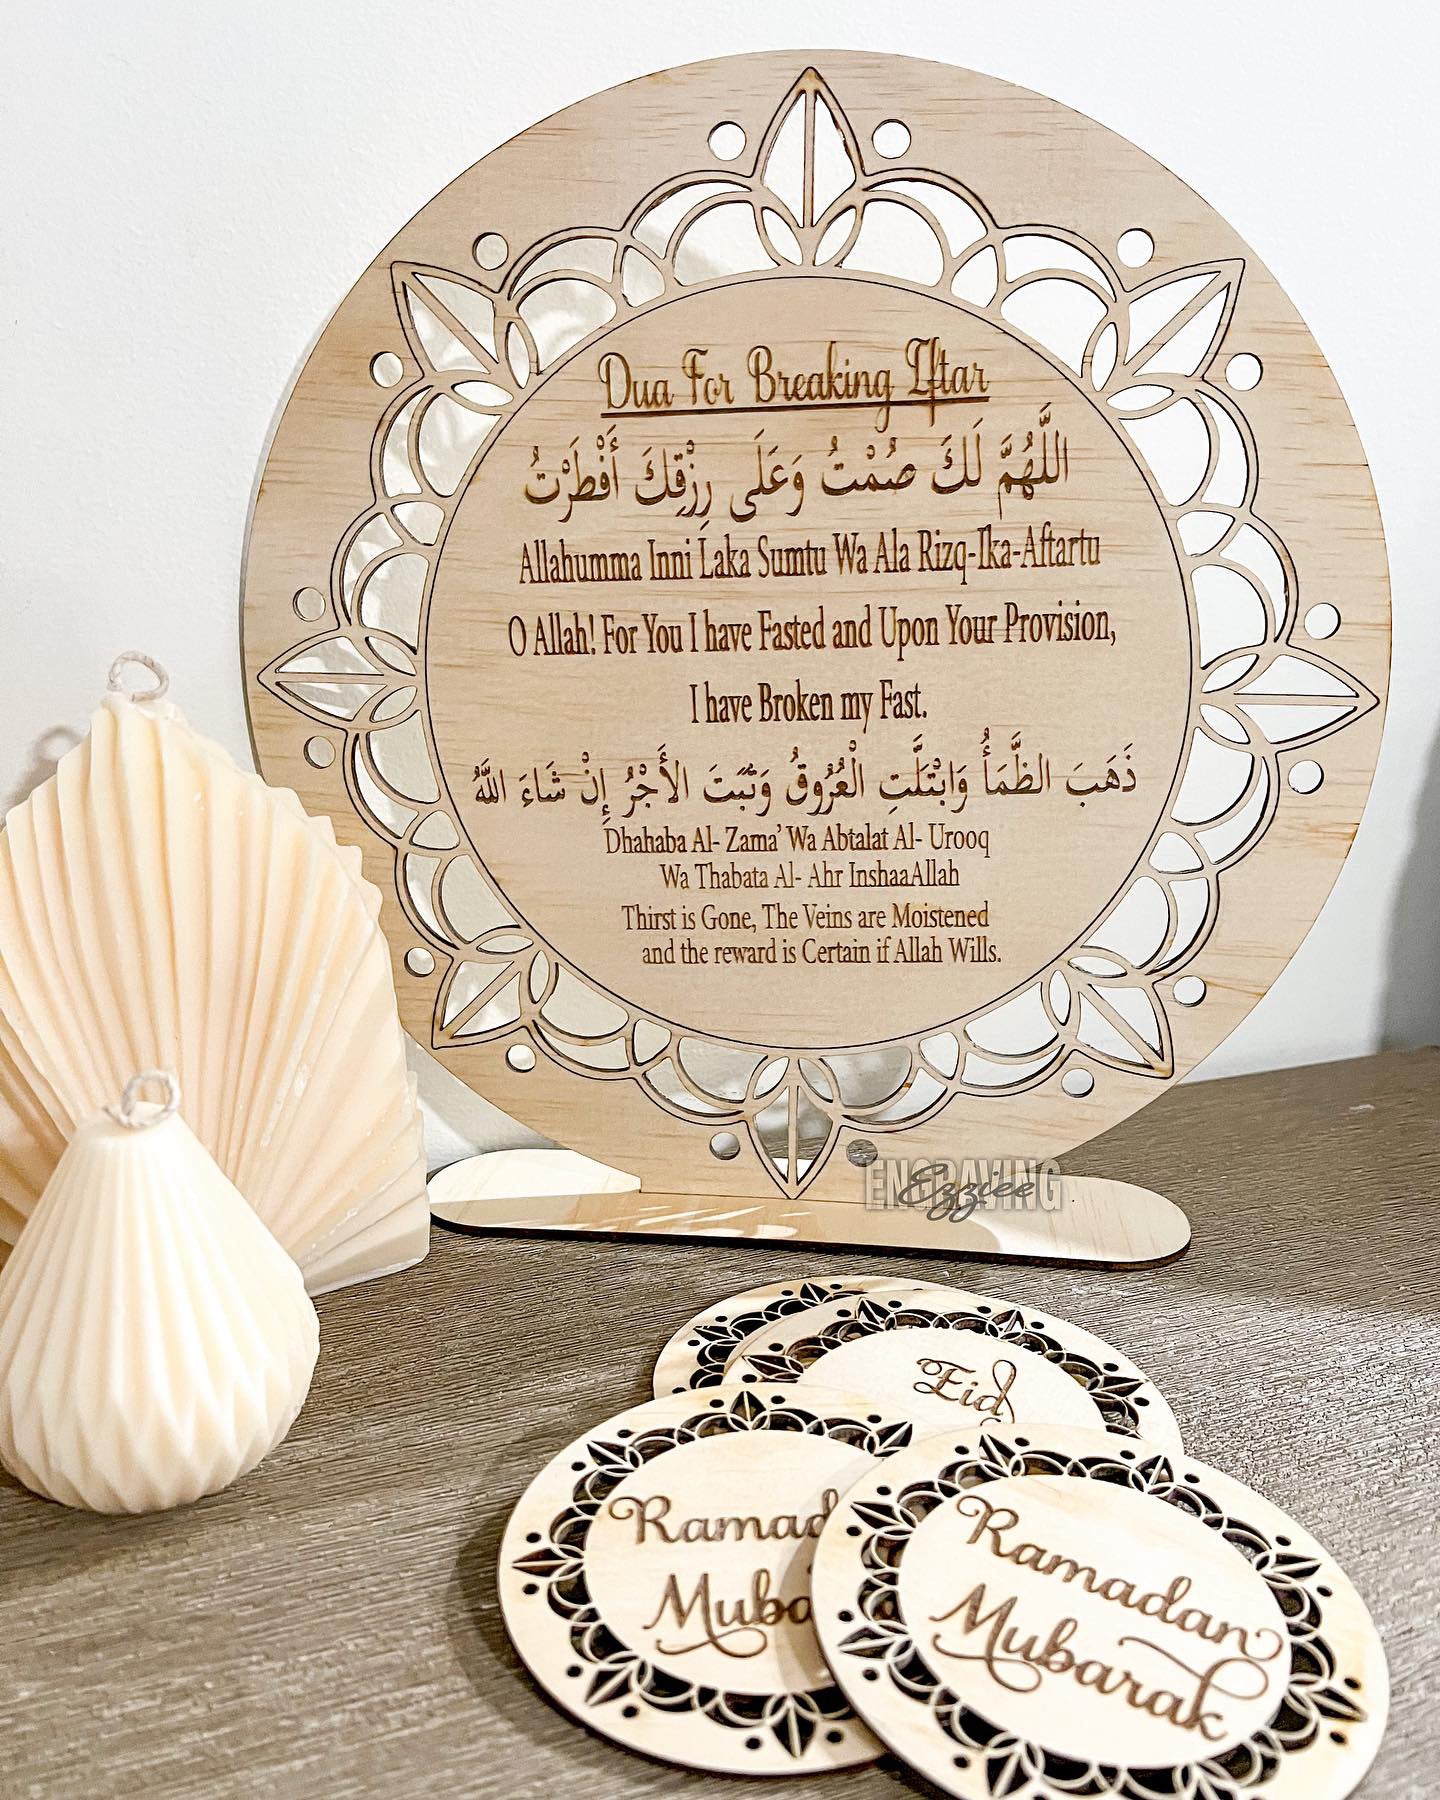 Dua For Breaking Iftar
اللَّهُمَّ لَكَ صُمْتُ وَعَلَى رِزْقِكَ أَفْطَرْتُ
Allahumma Inni Laka Sumtu Wa Ala Rizq-Ika-Aftartu
O Allah! For You I have Fasted and Upon Your Provision,
I have Broken my Fast.
ذَهَبَ الظَّمَأُ وَابْتَلَّتِ الْعُرُوقُ وَثَبَتَ الأَجْرُ إِنْ شَاءَ اللَّهُ
Dhahaba Al- Zama' Wa Abtalat Al- Urooq
Wa Thabata Al- Ahr InshaaAllah
Thirst is Gone, The Veins are Moistened
and the reward is Certain if Allah Wills.
ENGRAVING
Ezziee
Eid
Ramad
Muba
Ramadan
Mubarak